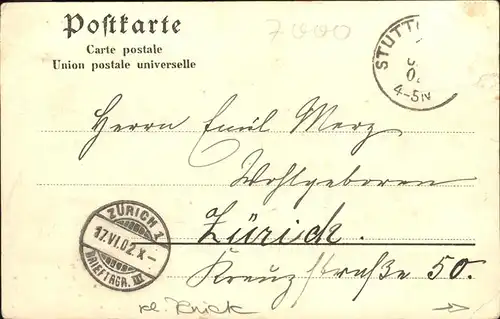 Postkarte
Carte postale
Union postale universelle
7000
STUTT
4-5N
Herrn Emil Merz
Wohlgeboren
Zürich.
Kreuzstraße 50.
ZÜRICH 1
17.VI.02 X-
BRIEFTRGR. III
kl. Knick